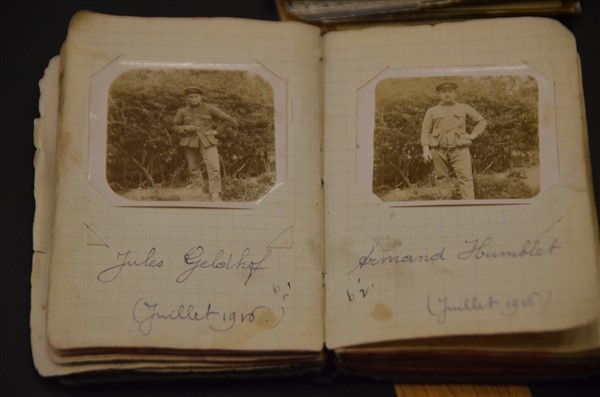 Jules Geldhof
(Juillet 1916.)
Armand Humblet
(Juillet 1916)